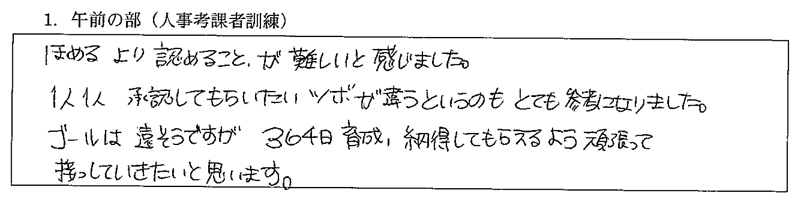 1. 午前の部（人事考課者訓練）
ほめる より 認めること、が 難しいと 感じました。
1人1人 承認してもらいたい ツボが違うというのも とても 参考になりました。
ゴールは 遠そうですが 364日 育成、納得してもらえるよう 頑張って
接っしていきたいと思います。